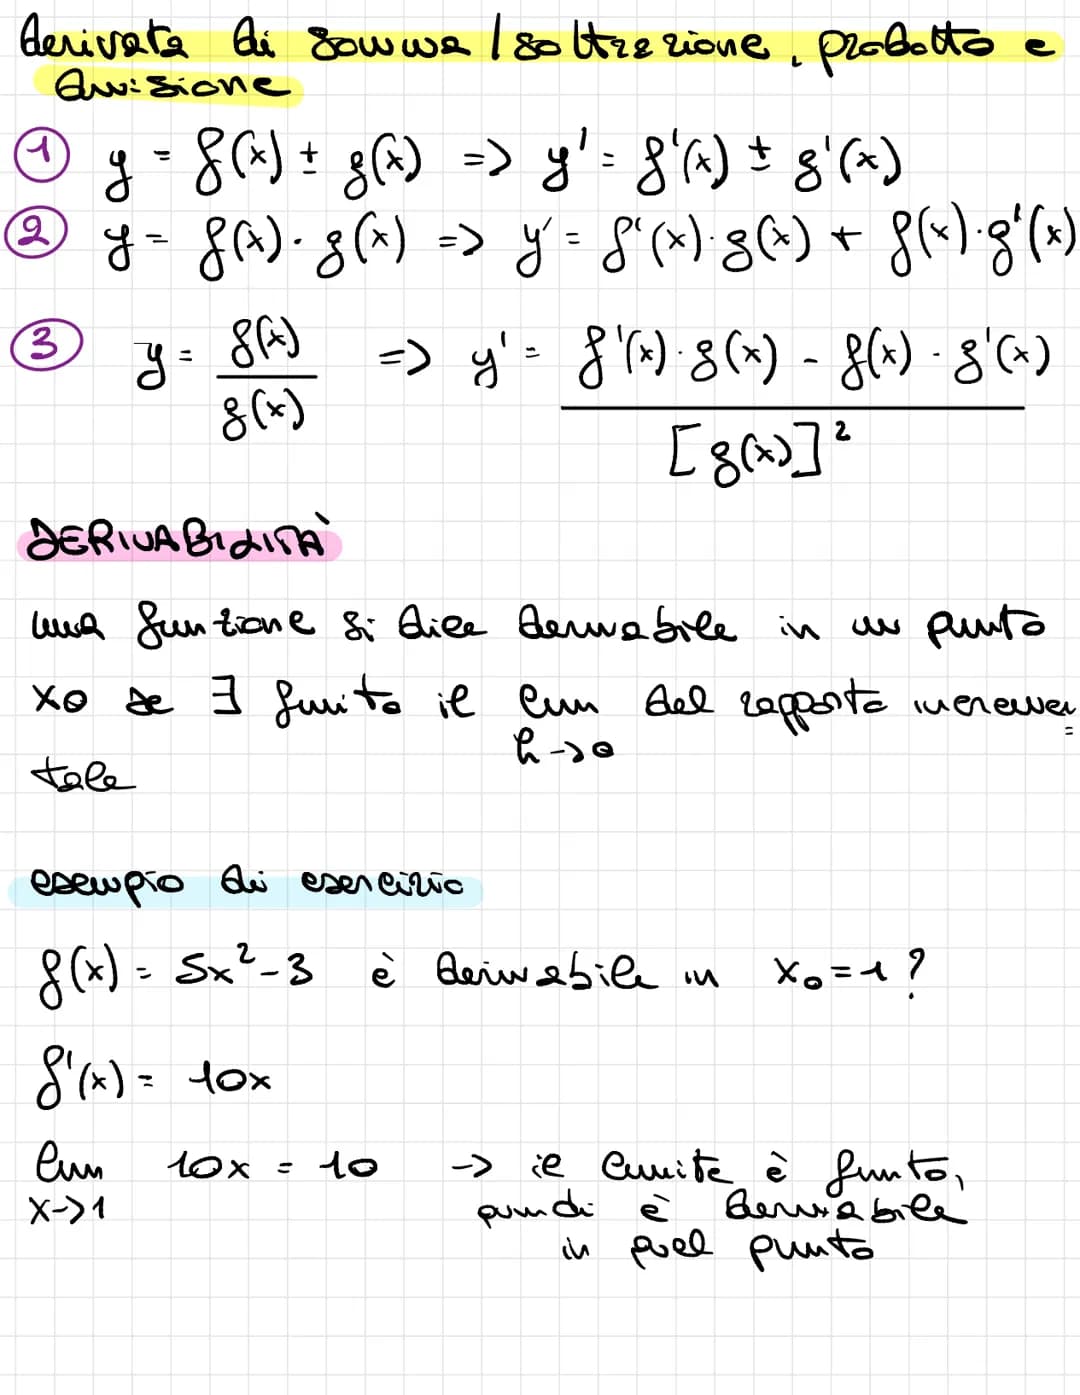 derivata di somma / sottrazione, prodotto e
divisione
① y = f(x) ± g(x) => y' = f'(x) ± g'(x)
② y = f(x) · g(x) => y' = f'(x) · g(x) + f(x) · g'(x)
③ y = f(x) / g(x) => y' = f'(x) · g(x) - f(x) · g'(x) / [g(x)]²
DERIVABILITÀ
una funzione si dice derivabile in un punto
x0 se ∃ finito il lim del rapporto incremen
h->0
tale
esempio di esercizio
f(x) = 5x² - 3 è derivabile in x₀ = 1 ?
f'(x) = 10x
lim 10x = 10 -> il limite è finito,
x->1 quindi è derivabile
in quel punto